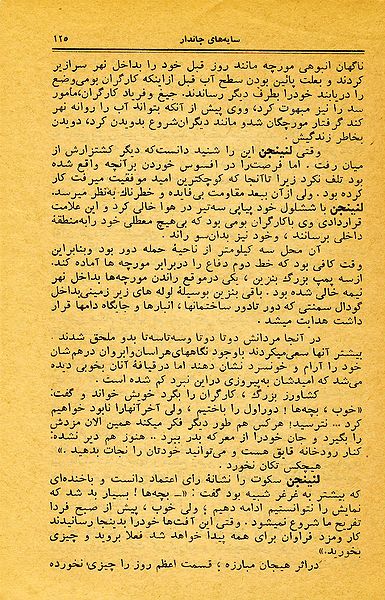 سایه‌های جاندار
۱۲۵
ناگهان انبوهی مورچه مانند روز قبل خود را بداخل نهر سرازیر
کردند و بعلت پائین بودن سطح آب قبل ازاینکه کارگران بومی‌وضع
را دریابند خودرا بطرف دیگر رساندند. جیغ و فریاد کارگران، مأمور
سد را نیز مبهوت کرد، ووی پیش از آنکه بتواند آب را روانه نهر
کند گرفتار مورچگان شدو مانند دیگران‌شروع بدویدن کرد، دویدن
بخاطر زندگیش.
وقتی لنینجن این را شنید دانست‌که دیگر کشتزارش از
میان رفت. اما فرصت‌را در افسوس خوردن برآنچه واقع شده
بود تلف نکرد زیرا تاآنجا که کوچکترین امید موفقیت میرفت کار
کرده بود. ولی ازآن ببعد مقاومت بی‌فایده و خطرناك به‌نظر میرسد.
لنینجن با ششلول خود پیاپی سه‌تیر در هوا خالی کرد و این علامت
قراردادی وی باکارگران بومی بود که بی‌هیچ معطلی خود رابه‌منطقهٔ
داخلی برسانند، وخود نیز بدان‌سو راند
آن محل سه کیلومتر از ناحیهٔ حمله دور بود وبنابراین
وقت کافی بود که خط دوم دفاع را دربرابر مورچه ها آماده کند.
ازسه پمپ بزرگ بنزین، یکی درموقع راندن مورچه‌ها بداخل نهر
نیمه خالی شده بود. باقی بنزین بوسیلهٔ لوله های زیر زمینی‌بداخل
گودال سمنتی که دور تادور ساختمانها، انبارها و جایگاه دامها قرار
داشت هدایت میشد.
در آنجا مردانش دوتا دوتا وسه‌تاسه‌تا بدو ملحق شدند.
بیشتر آنها سعی‌میکردند باوجود نگاههای‌هراسان‌وابروان درهم‌شان
خود را آرام و خونسرد نشان دهند اما درقیافهٔ آنان بخوبی دیده
می‌شد که امیدشان به‌پیروزی دراین نبرد کم شده است.
کشاورز بزرگ، کارگران را بگرد خویش خواند و گفت:
«خوب، بچه‌ها! دوراول را باختیم، ولی آخرآنهارا نابود خواهیم
کرد ... نترسید! هرکس هم طور دیگر فکر میکند همین الان مزدش
را بگیرد و جان خودرا از معرکه بدر ببرد .. هنوز هم دیر نشده.
کنار رودخانه قایق هست و می‌توانید خودتان را نجات بدهید.»
هیچکس تکان نخورد.
لنینجن سکوت را نشانهٔ رای اعتماد دانست و باخنده‌ای
که بیشتر به غرغر شبیه بود گفت: «ـــ بچه‌ها! بسیار بد شد که
نمایش را نتوانستیم ادامه دهیم؛ ولی خوب، پیش از صبح فردا
تفریح ما شروع نمیشود. وقتی این آفت‌ها خودرا بدینجا رسانیدند
کار ومزد فراوان برای همه پیدا خواهد شد فعلا بروید و چیزی
بخورید.»
دراثر هیجان مبارزه؛ قسمت اعظم روز را چیزی نخورده